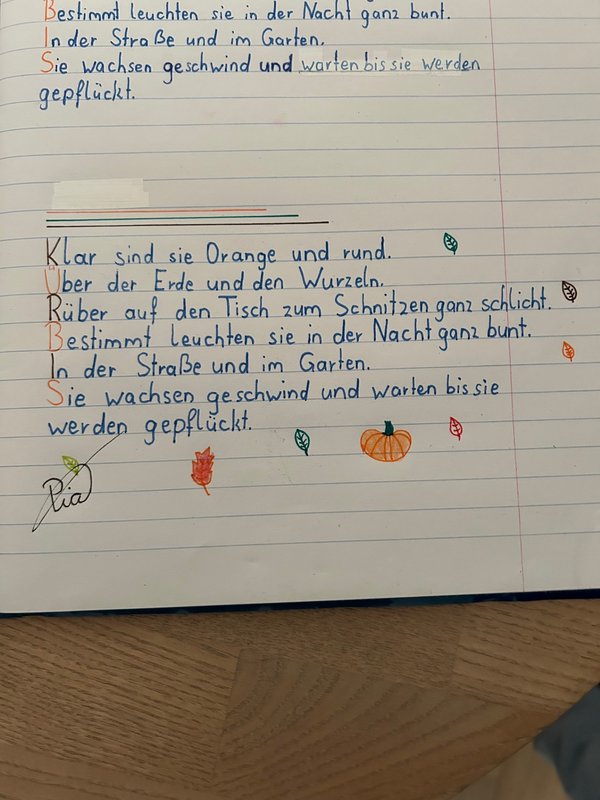 Bestimmt leuchten sie in der Nacht ganz bunt.
In der Straße und im Garten.
Sie wachsen geschwind und warten bis sie werden
gepflückt.
Klar sind sie Orange und rund.
Über der Erde und den Wurzeln.
Rüber auf den Tisch zum Schnitzen ganz schlicht.
Bestimmt leuchten sie in der Nacht ganz bunt.
In der Straße und im Garten.
Sie wachsen geschwind und warten bis sie
werden gepflückt.
Pia